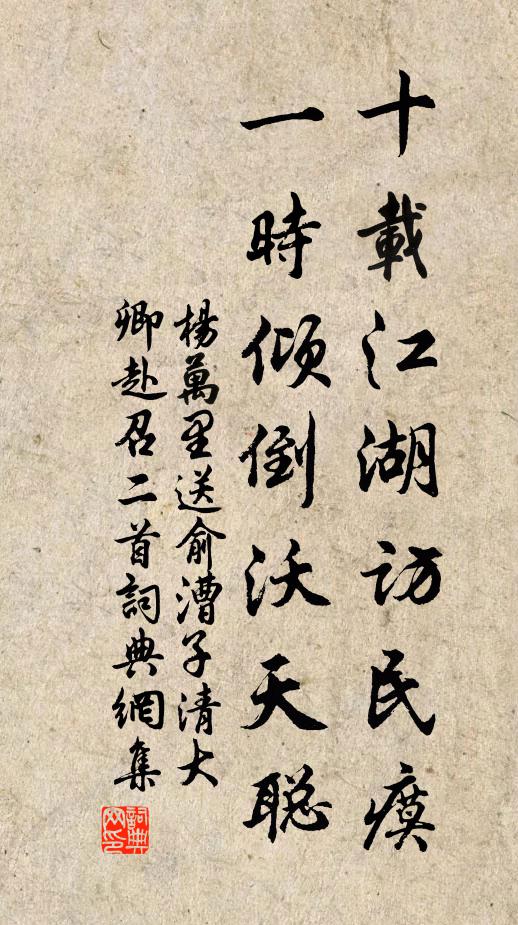 十載江湖訪民瘼
一時傾倒沃天聡
楊萬里送俞漕子清大
卿赴召二首詞典網集
詞典
网印